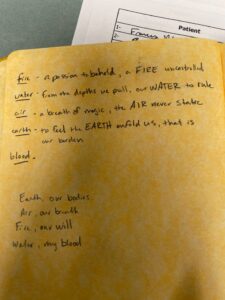 Patient
1-
2-
fire - a passion to behold, a FIRE uncontrolled
water - from the depths we pull, our WATER to rule
air - a breath of magic, the AIR never stake
earth - to feel the EARTH enfold us, that is
our burden
blood.
Earth, our bodies
Air, our breath
Fire, our will
Water, my blood